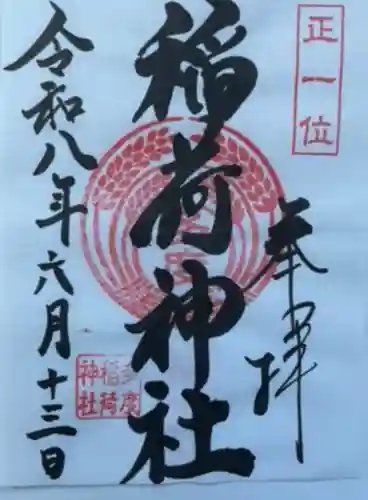 正一位
奉拝
稲荷神社
令和八年六月十三日
稲荷
神社